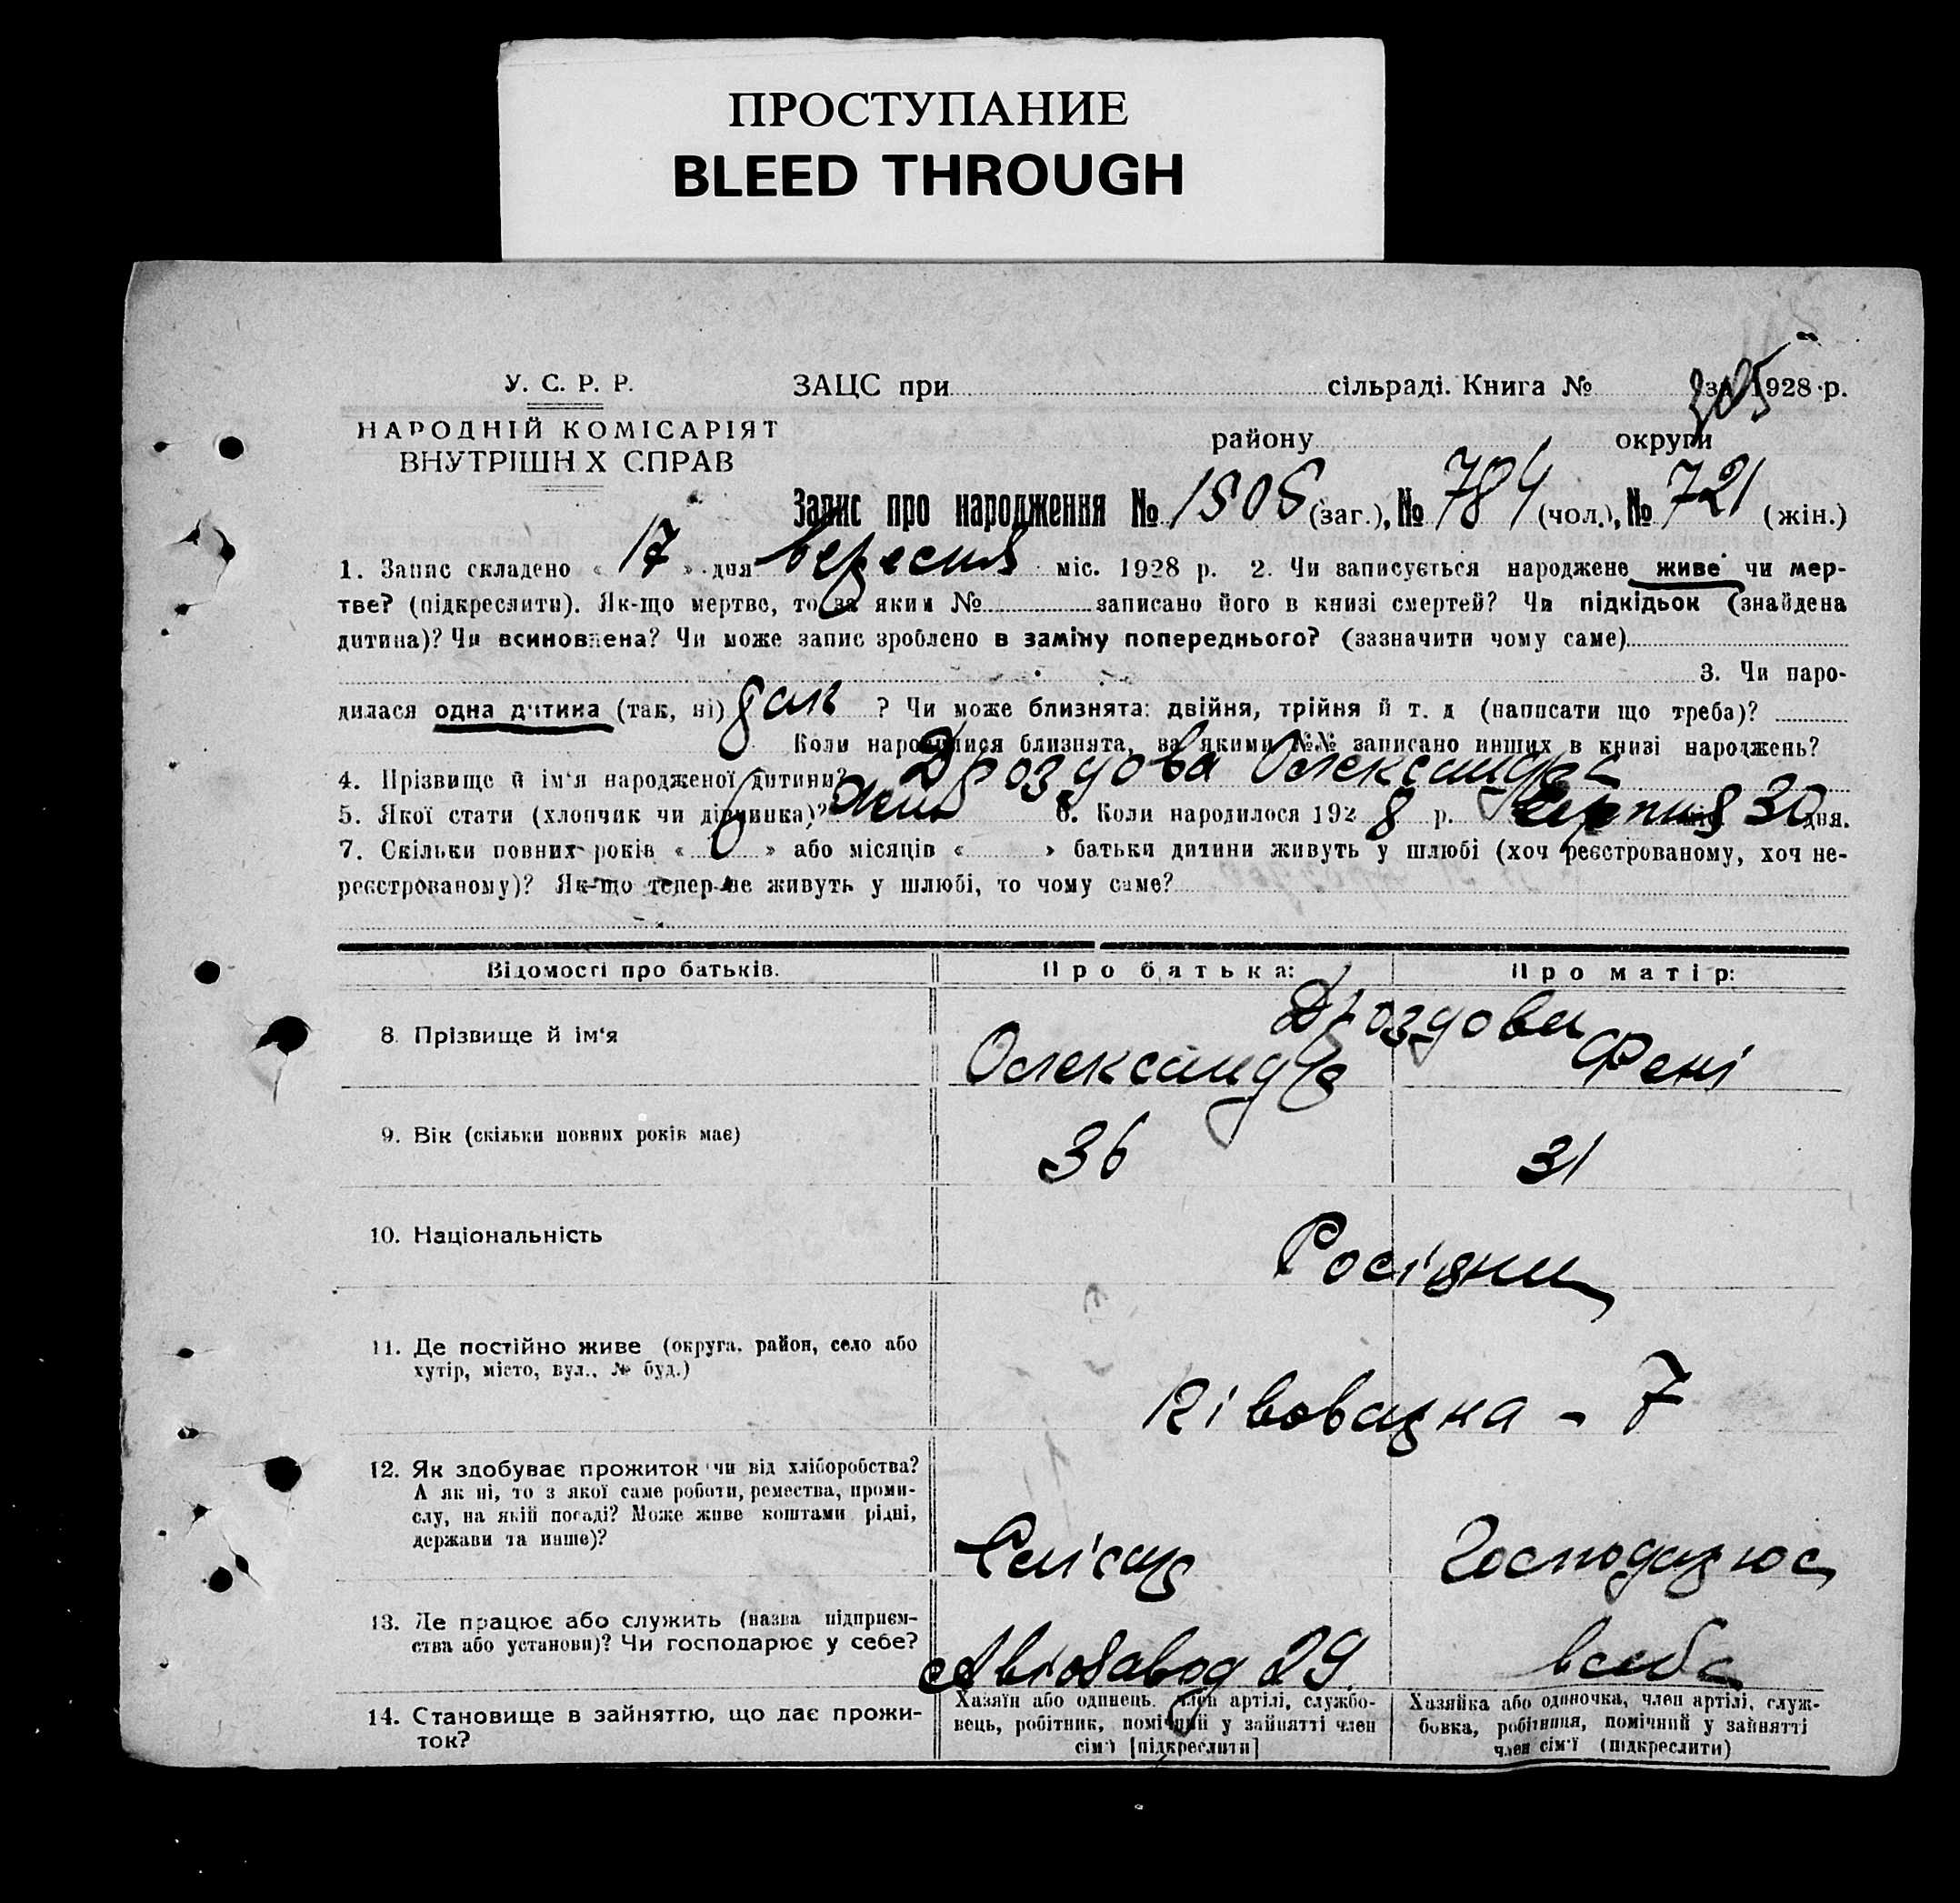 ПРОСТУПАНИЕ
BLEED THROUGH
У. С. Р. Р.
ЗАЦС при сільраді. Книга № за 1928 р.
НАРОДНІЙ КОМІСАРІЯТ
району округи
ВНУТРІШН Х СПРАВ
Запис про народження № 1505 (заг.), № 784 (чол.), № 721 (жін.)
1. Запис складено « 17 » дня вересня міс. 1928 р. 2. Чи записується народжене живе чи мер-
тве? (підкреслити). Як-що мертве, то за яким № записано його в книзі смертей? Чи підкідьок (знайдена
дитина)? Чи всиновлена? Чи може запис зроблено в заміну попереднього? (зазначити чому саме)
3. Чи наро-
дилася одна дитина (так, ні) ? Чи може близнята: двійня, трійня й т. д (написати що треба)?
Коли народилися близнята, за якими №№ записано инших в книзі народжень?
4. Прізвище й ім‘я народженої дитини? Дроздова Олександра
5. Якої стати (хлопчик чи дівчинка)? жін 6. Коли народилося 1928 р. серпня міс. 30 дня.
7. Скільки повних років « » або місяців « » батьки дитини живуть у шлюбі (хоч реєстрованому, хоч не-
реєстрованому)? Як-що тепер не живуть у шлюбі, то чому саме?
Відомості про батьків. Про батька: Про матір:
Дроздови
8. Прізвище й ім‘я Олександр Фені
9. Вік (скільки повних років має) 36 31
10. Національність Росіяни
11. Де постійно живе (округа, район, село або
хутір, місто, вул., № буд.)
7
12. Як здобуває прожиток чи від хліборобства?
А як ні, то з якої саме роботи, ремества, проми-
слу, на якій посаді? Може живе коштами рідні,
держави та инше)?
Слісар Господарює
13. Де працює або служить (назва підприєм-
ства або установи)? Чи господарює у себе?
Автозавод 29 в себе
14. Становище в зайняттю, що дає прожи-
ток?
Хазяїн або одинець, член артілі, службо-
вець, робітник, помічний у зайнятті член
сім‘ї [підкреслити]
Хазяйка або одиночка, член артілі, служ-
бовка, робітниця, помічний у зайнятті
член сім‘ї (підкреслити)